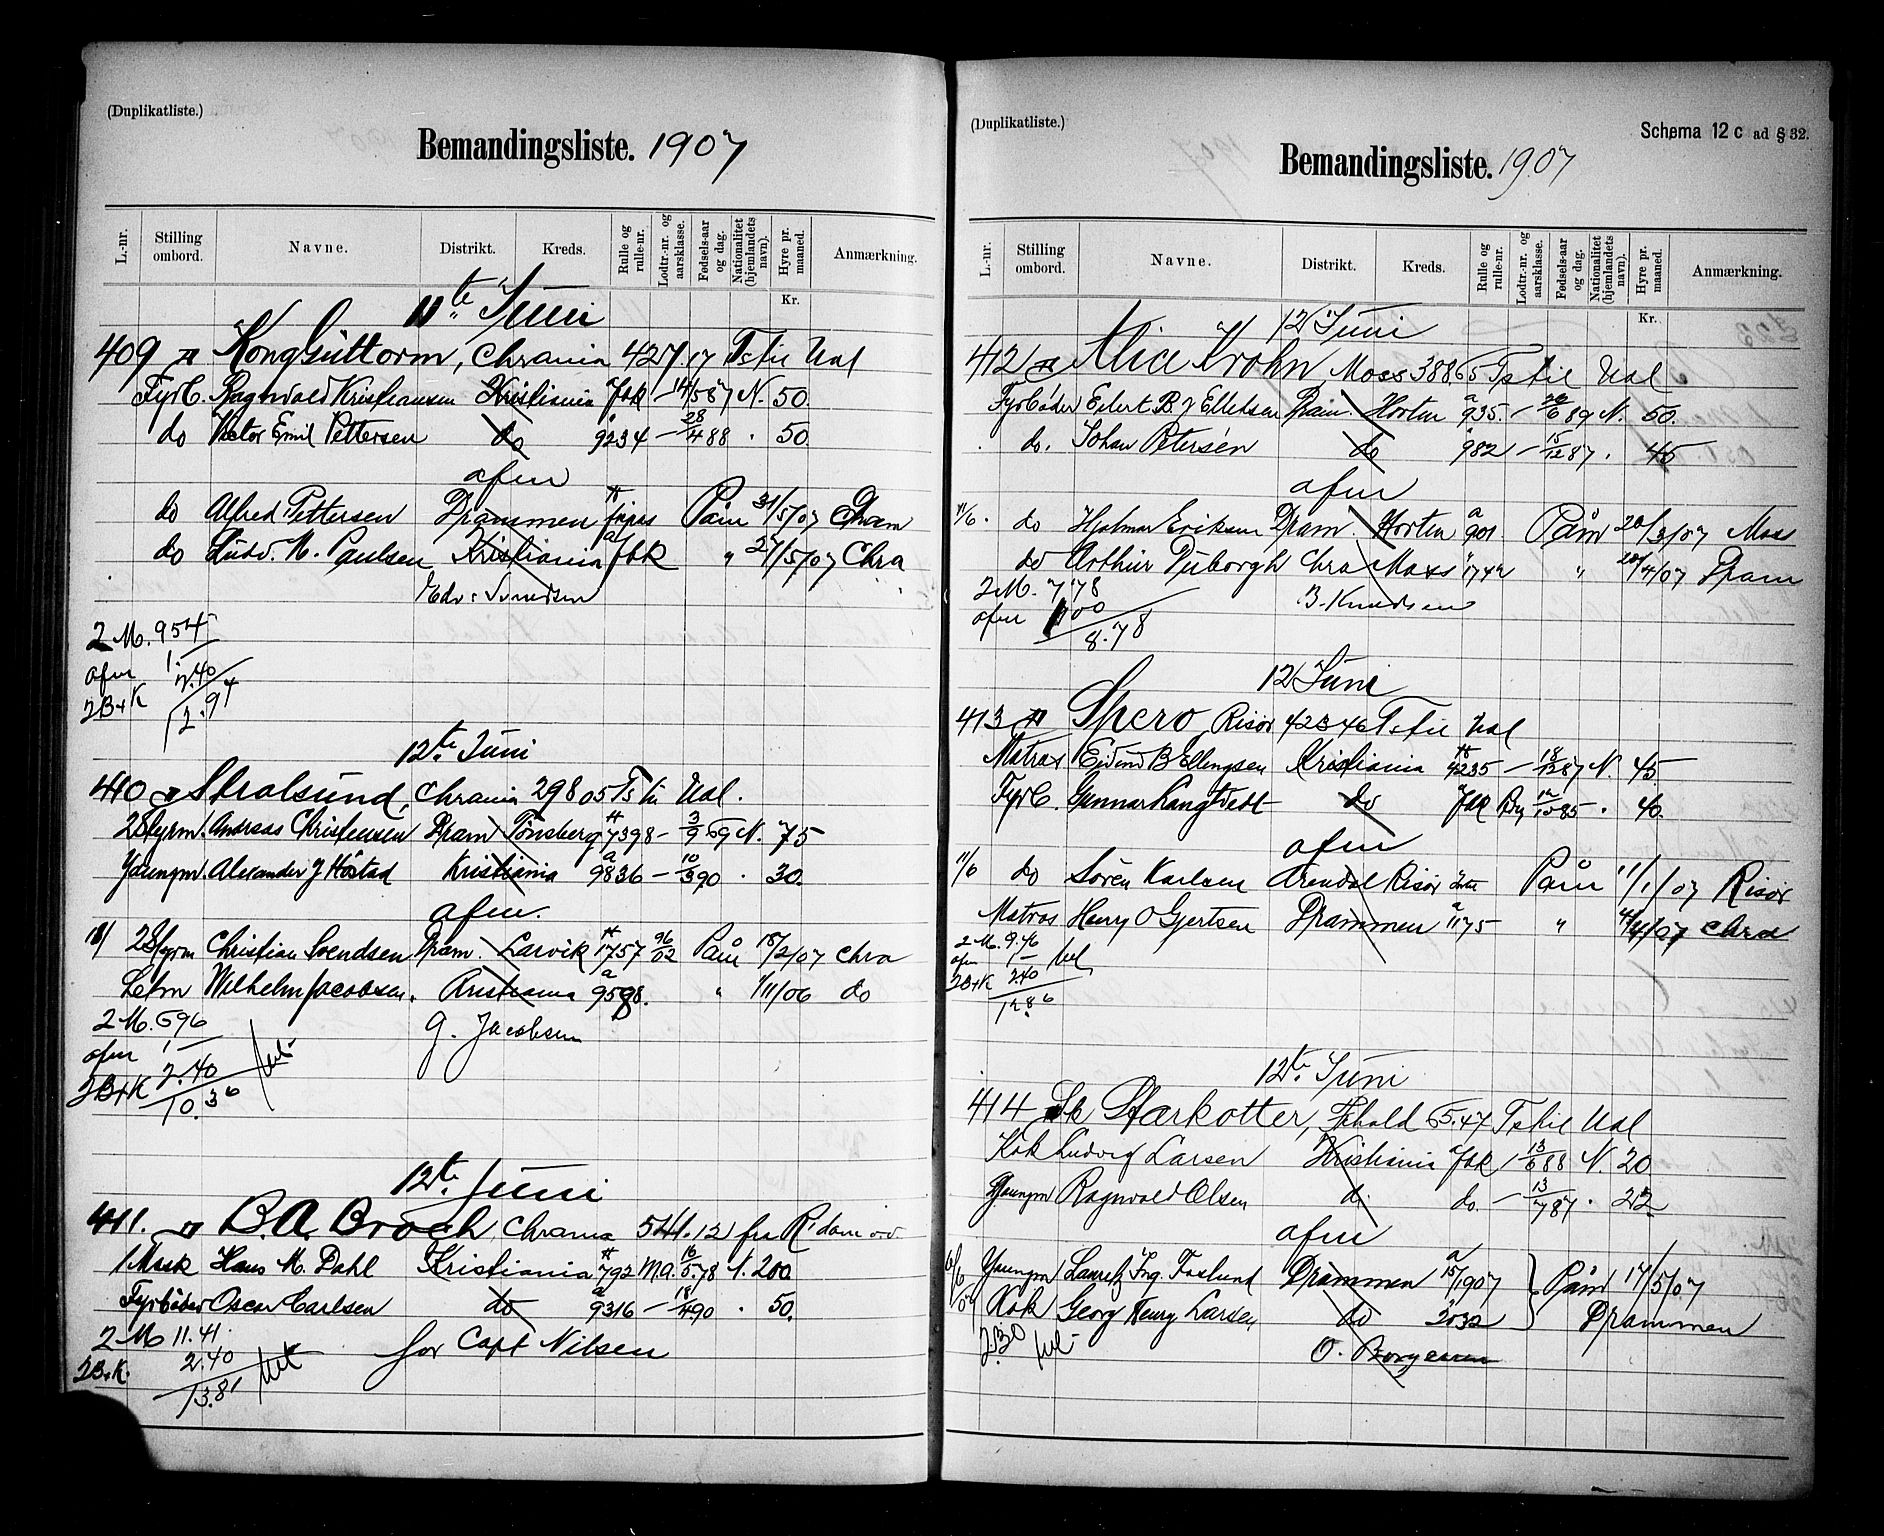 (Duplikatliste.)
Bemandingsliste. 1907
L.-nr. Stilling ombord. Navne. Distrikt. Kreds. Rulle og rulle-nr. Lodtr.-nr. og aarsklasse. Fødsels-aar og dag. Nationalitet (hjemlandets navn). Hyre pr. maaned. Anmærkning.
Kr.
11te Juni
409 Kong Guttorm, Chrania 427.17 Ts til Udl
FyrB. Ragnvald Kristiansen Kristiania fbk – 14/5 87 N. 50.
do Victor Emil Pettersen do a 9234 – 28/4 88 . 50.
afm
do Alfred Pettersen Drammen Paam 31/5/07 Dram
do Ludv. M. Paulsen Kristiania a fbk " 27/5/07 Chra
Edv. Svendsen
2 M. 9.54
afm 1.-
2B+K 2.40
12.94
12te Juni
410 Stralsund, Chrania 298 05 Ts til Udl.
2 Styrm. Andreas Christensen Dram Tønsberg 7398 – 3/9 69 N. 75
Youngm. Alexander J Høstad Kristiania a 9836 – 10/3 90 . 30.
afm.
2 Styrm Christian Svendsen Dram. Larvik 1757 96/02 Paam 15/2/07 Chra
Letm Wilhelm Jacobsen. Kristiania a 9598. " 1/11/06 do
G. Jacobsen
2 M. 6.96
afm 1 –
2B+K 2.40
10.36
12te Juni
411. B.A. Broch, Chrania 541.12 fra R'dam
1 Mask Hans M. Dahl Kristiania 792 M.A. 16/5 78 N. 200
Fyrbøder Oscar Carlsen do a 9316 – 18/4 90 . 50.
for Capt Nilsen
2 M 11.41
2B.K. 2.40
13.81
(Duplikatliste.)
Schema 12 c ad § 32.
Bemandingsliste. 1907
L.-nr. Stilling ombord. Navne. Distrikt. Kreds. Rulle og rulle-nr. Lodtr.-nr. og aarsklasse. Fødsels-aar og dag. Nationalitet (hjemlandets navn). Hyre pr. maaned. Anmærkning.
Kr.
12 Juni
412 Alice Krohn, Moss 388,65 Ts til Udl
Fyrbøder Eilert B. J Ellefsen Dram. Horten a 935. – 26/6 89 N. 50.
do. Johan Petersen do 982 – 15/12 87 . 45
afm
11/6. do Hjalmar Eriksen Dram. Horten a 901 Paam 20/3/07 Moss
do Arthur Tuborgh Chra Moss 1742 " 20/4/07 Dram
B. Knudsen
2 M. 7.78
afm 1.00
8.78
12 Juni
413 Spero, Risør 423 46 Ts til Udl
Matros Eivind B Ellingsen Kristiania 4235 – 18/12 87 N. 45
FyrB. Gunnar Langtvedt do fbk 85 . 40.
afm
11/6 do Søren Karlsen Arendal Risør Paam 11/1/07 Risør
Matros Harry O Gjertsen Drammen a 1175 " 4/4/07 Chra
2 M. 9.46
afm 1 –
2B+K 2.40
12.86
12te. Juni
414 Sk Starkotter, Fshald 65.47 Ts til Udl
Kok Ludvig Larsen Kristiania fbk 13/6 88 N. 20
Youngm Ragnvald Olsen do do. – 13/7 87 . 22
afm
Youngm Lauretz Ing. Foslund Drammen a 15/1907 Paam 17/5/07
Kok Georg Henry Larsen do 2032 Drammen
2.30
O. Borgersen